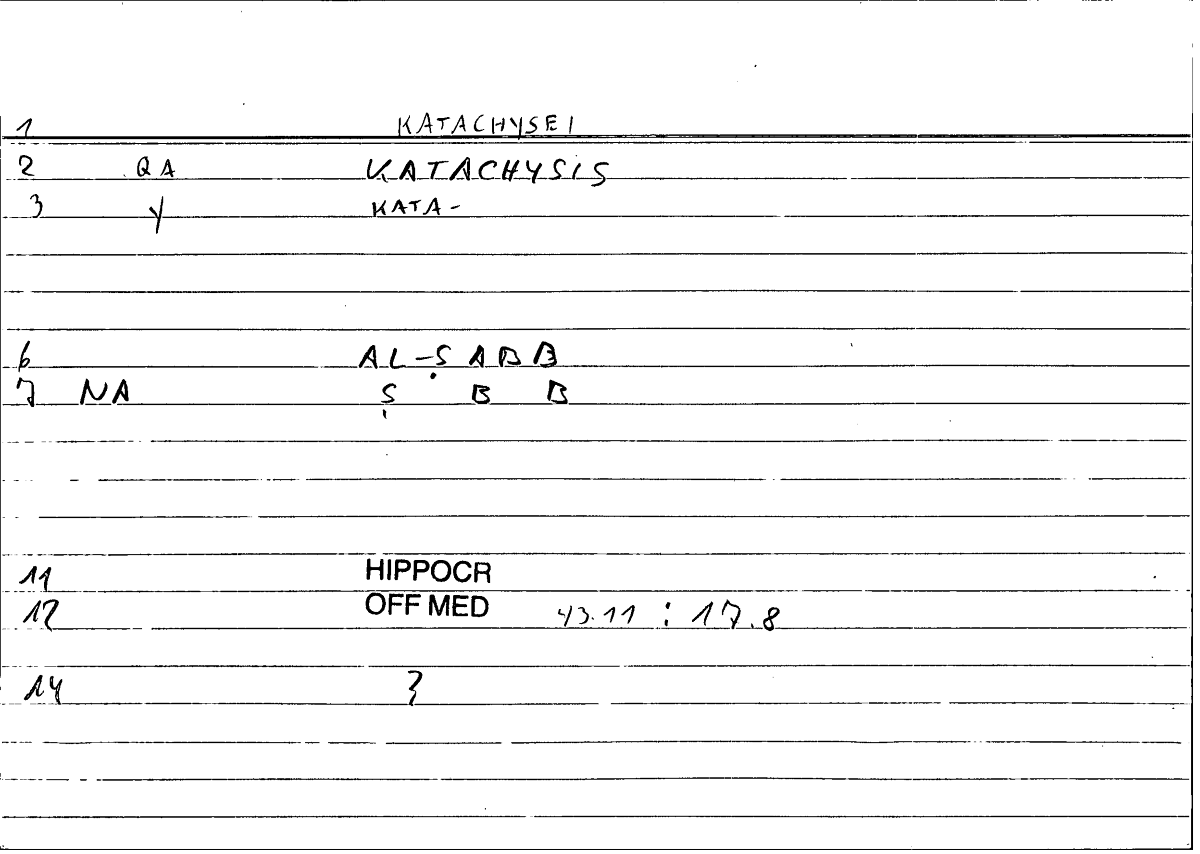 1 KATACHYSEI
2 QA KATACHYSIS
3 Y KATA-
6 AL-ṢABB
7 NA Ṣ B B
11 HIPPOCR
12 OFF MED 43.11 : 17.8
14 3